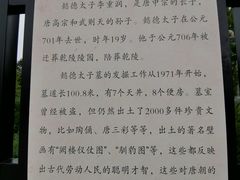 懿德太子李重润，是唐中宗的长子，
唐高宗和武则天的孙子。懿德太子在公元
701年去世，时年19岁。他于公元706年被
迁葬乾陵陵园，陪葬乾陵。
懿德太子墓的发掘工作从1971年开始，
墓道长100.8米，有7个天井，8个便房。墓室
曾经被盗，但仍然出土了2000多件珍贵文
物，比如陶俑、唐三彩等等，出土的著名壁
画有“阙楼仪仗图”、“驯豹图”等，这些都反映
出古代劳动人民的聪明才智，这些对唐朝的